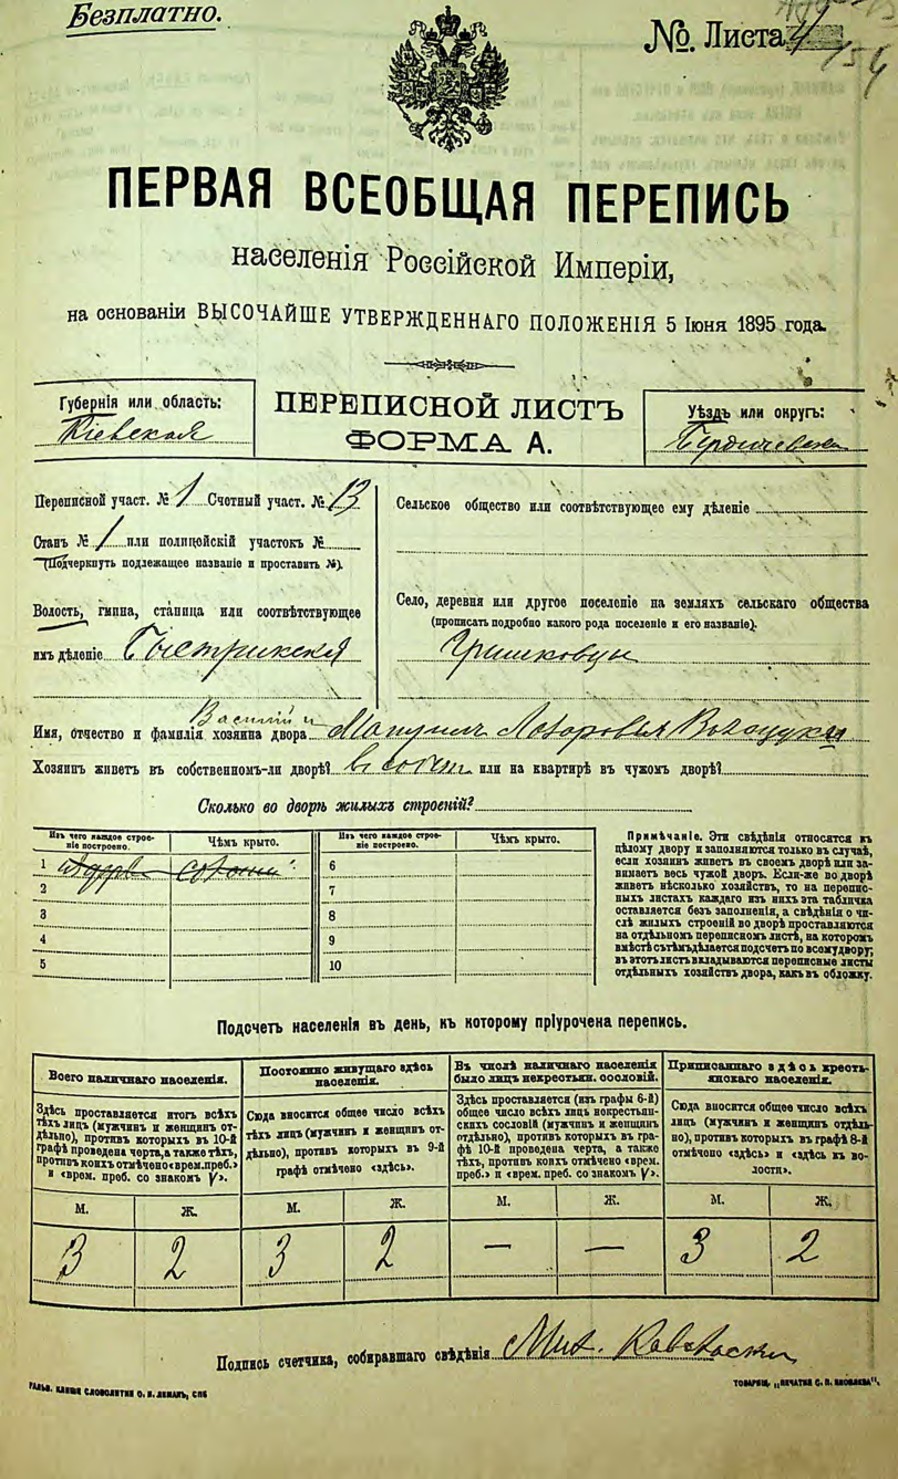 Безплатно.
№ Листа 4
154
ПЕРВАЯ ВСЕОБЩАЯ ПЕРЕПИСЬ
населенія Россійской Имперіи,
на основаніи ВЫСОЧАЙШЕ УТВЕРЖДЕННАГО ПОЛОЖЕНІЯ 5 Іюня 1895 года.
Губернія или область:
Кіевская
ПЕРЕПИСНОЙ ЛИСТЪ
ФОРМА А.
Уѣздъ или округъ:
Переписной участ. № 1 Счетный участ. № 13
Станъ № 1 или полицейскій участокъ №
(Подчеркнуть подлежащее названіе и проставить №).
Волость, гмина, станица или соотвѣтствующее
имъ дѣленіе Быстрикская
Сельское общество или соотвѣтствующее ему дѣленіе
Село, деревня или другое поселеніе на земляхъ сельскаго общества
(прописать подробно какого рода поселеніе и его названіе).
Гришковцы
Василій и
Имя, отчество и фамилія хозяина двора Лазаровы
Хозяинъ живетъ въ собственномъ-ли дворѣ? въ собст. или на квартирѣ въ чужомъ дворѣ?
Сколько во дворѣ жилыхъ строеній?
Изъ чего каждое строеніе построено.
Чѣмъ крыто.
1 соломи
2
3
4
5
Изъ чего каждое строеніе построено.
Чѣмъ крыто.
6
7
8
9
10
Примѣчаніе. Эти свѣдѣнія относятся къ
цѣлому двору и заполняются только въ случаѣ,
если хозяинъ живетъ въ своемъ дворѣ или за-
нимаетъ весь чужой дворъ. Если-же во дворѣ
живетъ нѣсколько хозяйствъ, то на перепис-
ныхъ листахъ каждаго изъ нихъ эта табличка
оставляется безъ заполненія, а свѣдѣнія о чи-
слѣ жилыхъ строеній во дворѣ проставляются
на отдѣльномъ переписномъ листѣ, на которомъ
вмѣстѣ съ тѣмъ дѣлается подсчетъ по всему двору;
въ этотъ листъ вкладываются переписные листы
отдѣльныхъ хозяйствъ двора, какъ въ обложку.
Подсчетъ населенія въ день, къ которому пріурочена перепись.
Всего наличнаго населенія.
Здѣсь проставляется итогъ всѣхъ
тѣхъ лицъ (мужчинъ и женщинъ от-
дѣльно), противъ которыхъ въ 10-й
графѣ проведена черта, а также тѣхъ,
противъ коихъ отмѣчено «врем. преб.»
и «врем. преб. со знакомъ V».
М. Ж.
3 2
Постоянно живущаго здѣсь
населенія.
Сюда вносится общее число всѣхъ
тѣхъ лицъ (мужчинъ и женщинъ от-
дѣльно), противъ которыхъ въ 9-й
графѣ отмѣчено «здѣсь».
М. Ж.
3 2
Въ числѣ наличнаго населенія
было лицъ некрестьян. сословій.
Здѣсь проставляется (изъ графы 6-й)
общее число всѣхъ лицъ некрестьян-
скихъ сословій (мужчинъ и женщинъ
отдѣльно), противъ которыхъ въ гра-
фѣ 10-й проведена черта, а также
тѣхъ, противъ коихъ отмѣчено «врем.
преб.» и «врем. преб. со знакомъ V».
М. Ж.
— —
Приписаннаго здѣсь кресть-
янскаго населенія.
Сюда вносится общее число всѣхъ
лицъ (мужчинъ и женщинъ отдѣль-
но), противъ которыхъ въ графѣ 8-й
отмѣчено «здѣсь» и «здѣсь къ во-
лости».
М. Ж.
3 2
Подпись счетчика, собиравшаго свѣдѣнія Мих.
ГАЛЬВ. КЛИШЕ СЛОВОЛИТНИ О. И. ЛЕМАНЪ, СПБ
ТОВАРИЩ. „ПЕЧАТНЯ С. П. ЯКОВЛЕВА“.